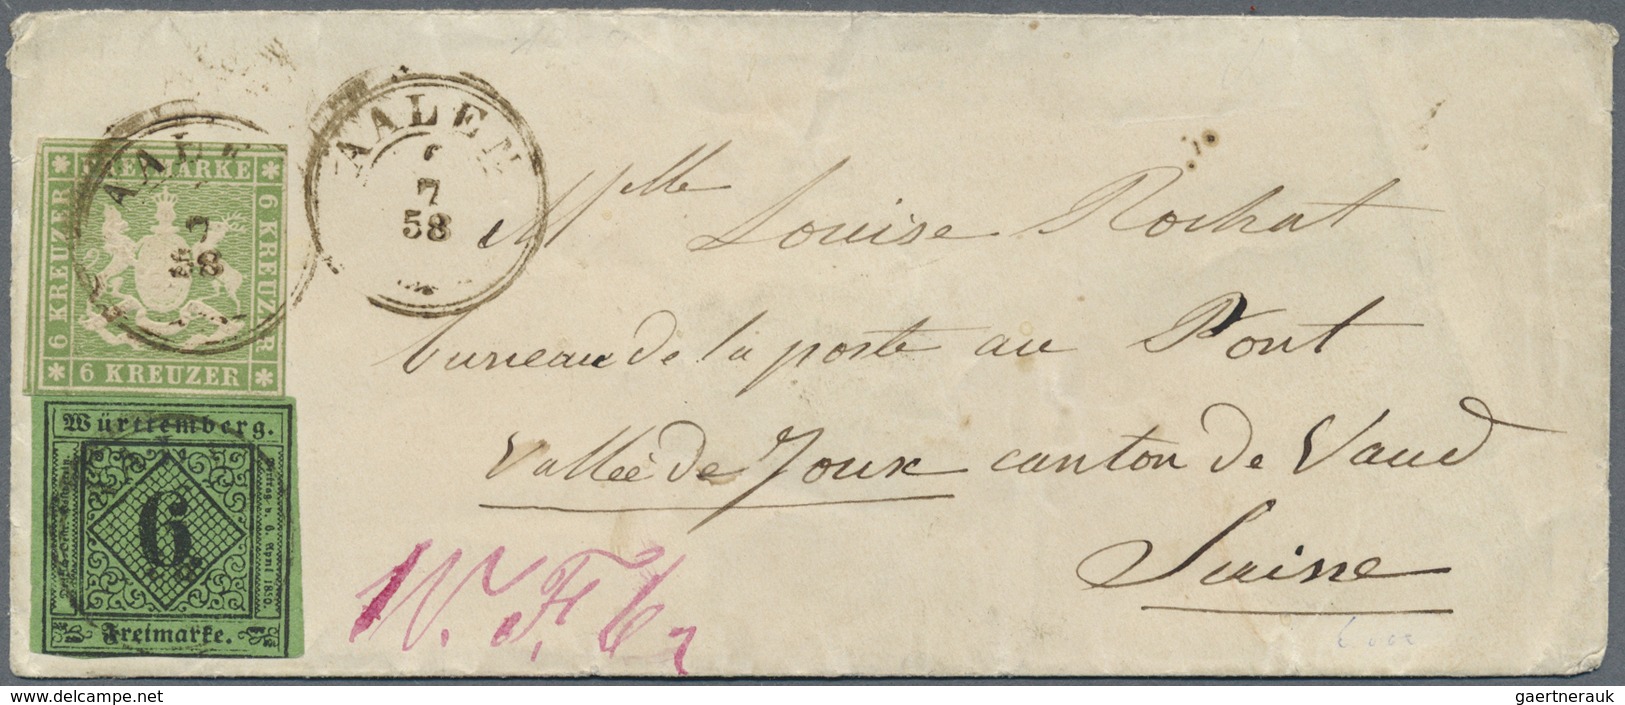 AALEN
7
58
AALE
58
FREIMARKE
6 KREUZER
6 KREUZER
6 KREUZER
Württemberg.
6
Freimarke.
Mlle Louise Rochat
bureau de la poste au Pont
Vallée de Joux canton de Vaud
Suisse
W. F. 6
www.delcampe.net
gaertnerauk